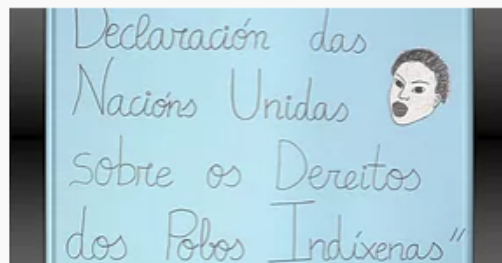 Declaración das
Nacións Unidas
sobre os Dereitos
dos Pobos Indíxenas"